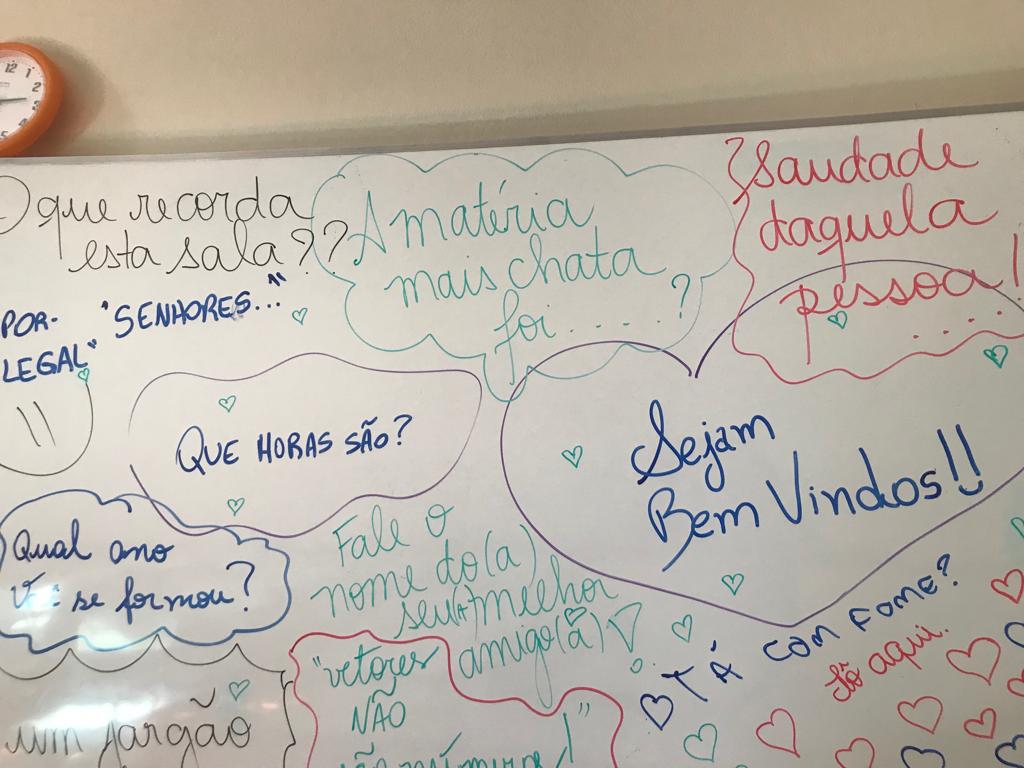 12
1
2
3
5
O que recorda
esta sala??
POR- "SENHORES..."
LEGAL"
A matéria
mais chata
foi.....?
Saudade
daquela
pessoa!
....
QUE HORAS SÃO?
Sejam
Bem Vindos!!
Qual ano
se formou?
Fale o
nome do(a)
seu(a) melhor
amigo(a)
"vetores
NÃO
!"
um jargão
TÁ COM FOME?
Tô aqui.